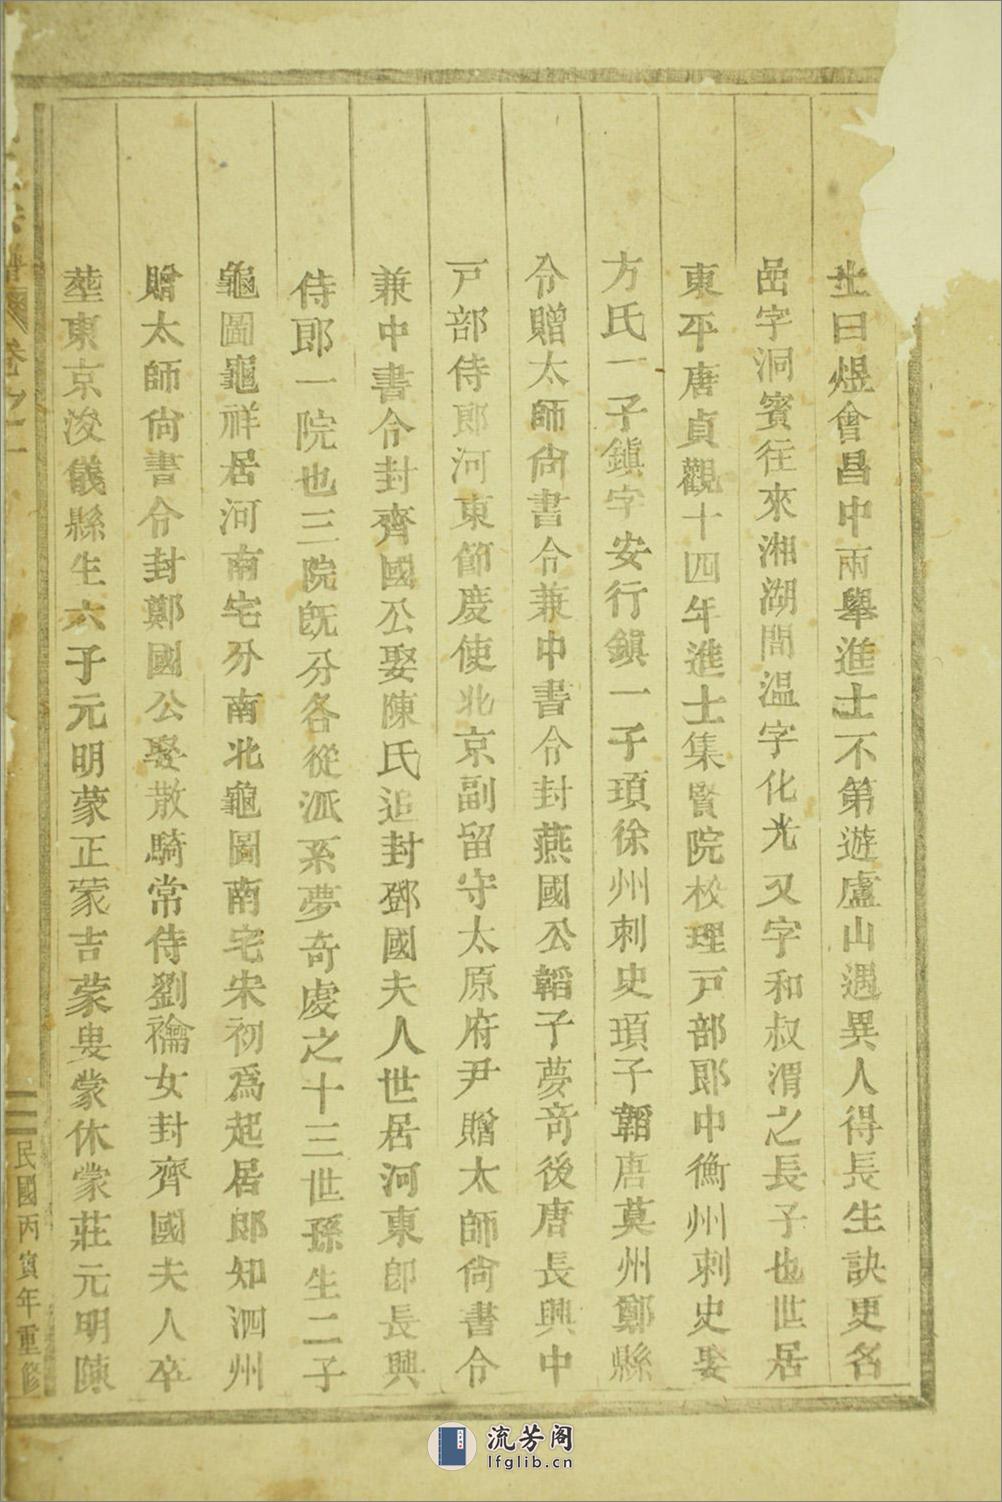 士曰煜會昌中兩舉進士不第遊廬山遇異人得長生訣更名
嵒字洞賓往來湘湖間温字化光又字和叔渭之長子也世居
東平唐貞觀十四年進士集賢院校理戸部郎中衡州刺史娶
方氏一子鎮字安行鎮一子頊徐州刺史頊子韜唐莫州鄭縣
令贈太師尙書令兼中書令封燕國公韜子夢奇後唐長興中
戸部侍郎河東節度使北京副留守太原府尹贈太師尙書令
兼中書令封齊國公娶陳氏追封鄧國夫人世居河東卽長興
侍郎一院也三院旣分各從派系夢奇處之十三世孫生二子
龜圖龜祥居河南宅分南北龜圖南宅宋初爲起居郎知泗州
贈太師尙書令封鄭國公娶散騎常侍劉禴女封齊國夫人卒
塟東京浚儀縣生六子元明蒙正蒙吉蒙叟蒙休蒙莊元明陳
譜 卷之一
二 民國丙寅年重修
流芳阁
lfglib.cn